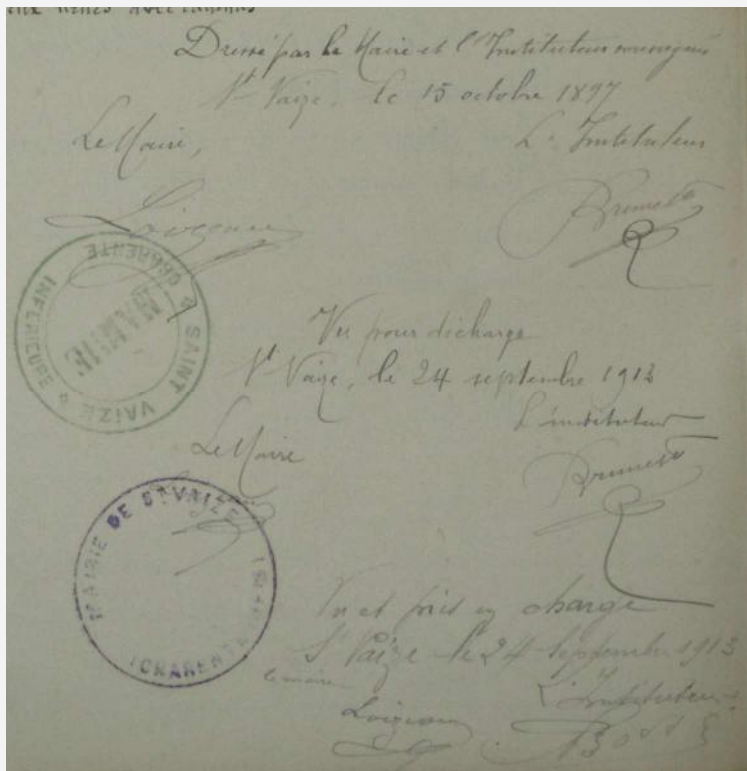 Dressé par le Maire et l'Instituteur soussignés
St Vaize, le 15 octobre 1897
Le Maire,
L'Instituteur
Brunet
SAINT VAIZE
CHARENTE INFÉRIEURE
MAIRIE
Vu pour décharge
St Vaize, le 24 septembre 1913
L'instituteur
Le Maire
Brunet
MAIRIE DE ST VAIZE
Vu et pris en charge
St Vaize le 24 Septembre 1913
le maire
L'Instituteur